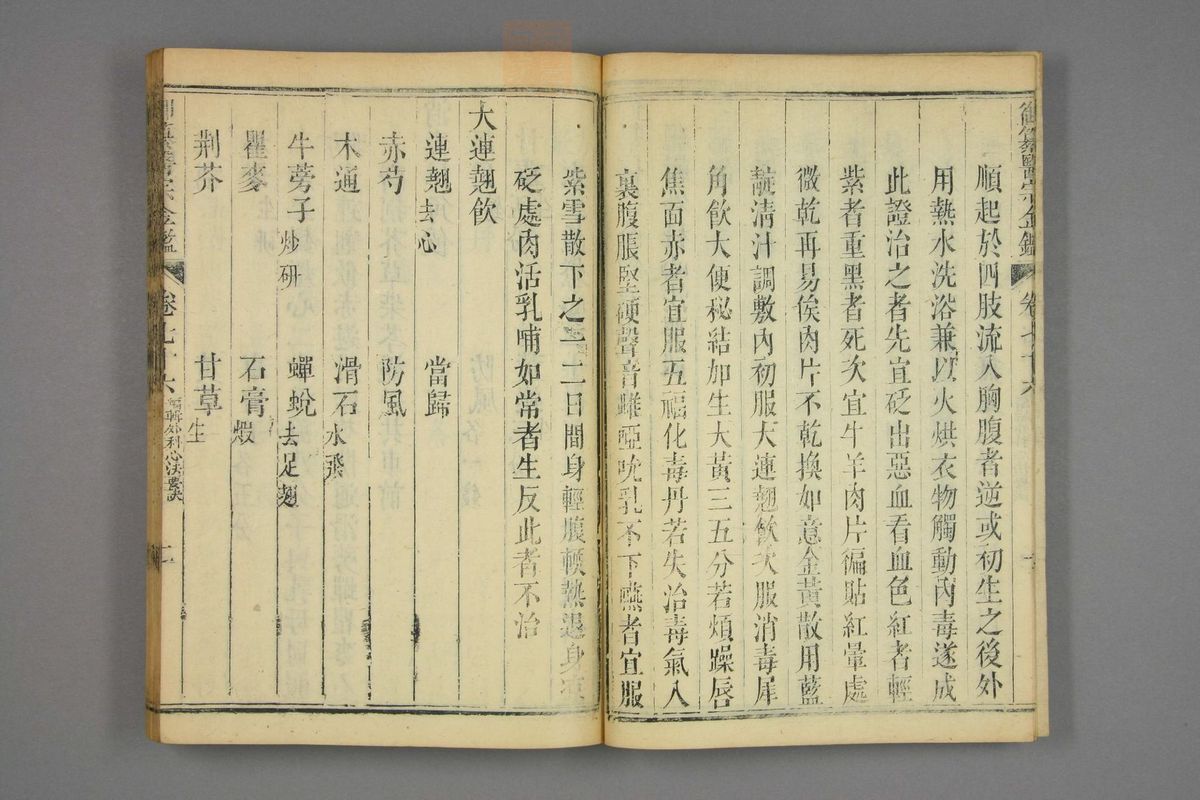 御纂醫宗金鑑 卷七十六
順起於四肢流入胸腹者逆或初生之後外
用熱水洗浴兼以火烘衣物觸動內毒遂成
此證治之者先宜砭出惡血看血色紅者輕
紫者重黑者死次宜牛羊肉片徧貼紅暈處
微乾再易俟肉片不乾換如意金黃散用藍
靛清汁調敷內初服大連翹飲次服消毒犀
角飲大便秘結加生大黃三五分若煩躁唇
焦面赤者宜服五福化毒丹若失治毒氣入
裏腹脹堅硬聲音雖啞吮乳不下嚥者宜服
紫雪散下之三二日間身輕腹軟熱退身涼
砭處肉活乳哺如常者生反此者不治
大連翹飲
連翹去心 當歸
赤芍 防風
木通 滑石水飛
牛蒡子炒研 蟬蛻去足翅
瞿麥 石膏煆
荊芥 甘草生
御纂醫宗金鑑 卷七十六 編輯外科心法要訣 二